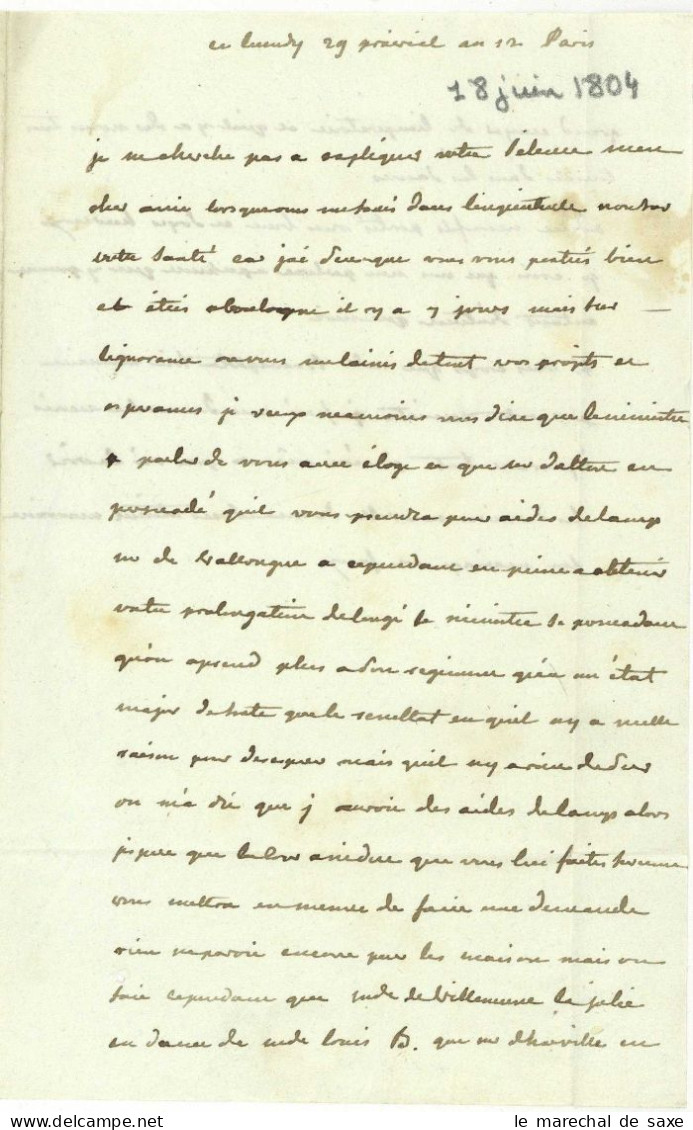 ce lundy 29 prairial an 12 Paris
18 juin 1804
je ne cherche pas a expliquer votre silence mon
cher amie lorsque vous me laissés dans l'inquietude
votre santé car jai que vous vous portiés bien
et étiés a boulogne il y a 7 jours mais sur
lignorance ou vous me laissés de tout vos projets et
esperances je veux neanmoins vous dire que le ministre
a parler de vous avec éloge et que mr est
persuadé quil vous prendra pour aides de camp
mr de Vallongue a cependant eu peine a obtenir
votre prolongation de congé le ministre se persuadant
qu'on aprend plus a son regiment qu'a un état
major de suite que le resultat est quil ny a nulle
raison pour desesperer mais quil ny a rien de sur
on m'a dit que j auroit des aides de camp alors
jespere que la que vous lui faites
vous mettra en mesure de faire une demande
rien ne paroit encore pour les maison mais on
sait cependant que mde de Villeneuve la jolie
est dame de mde louis B. que mr d'harville est
le marechal de saxe